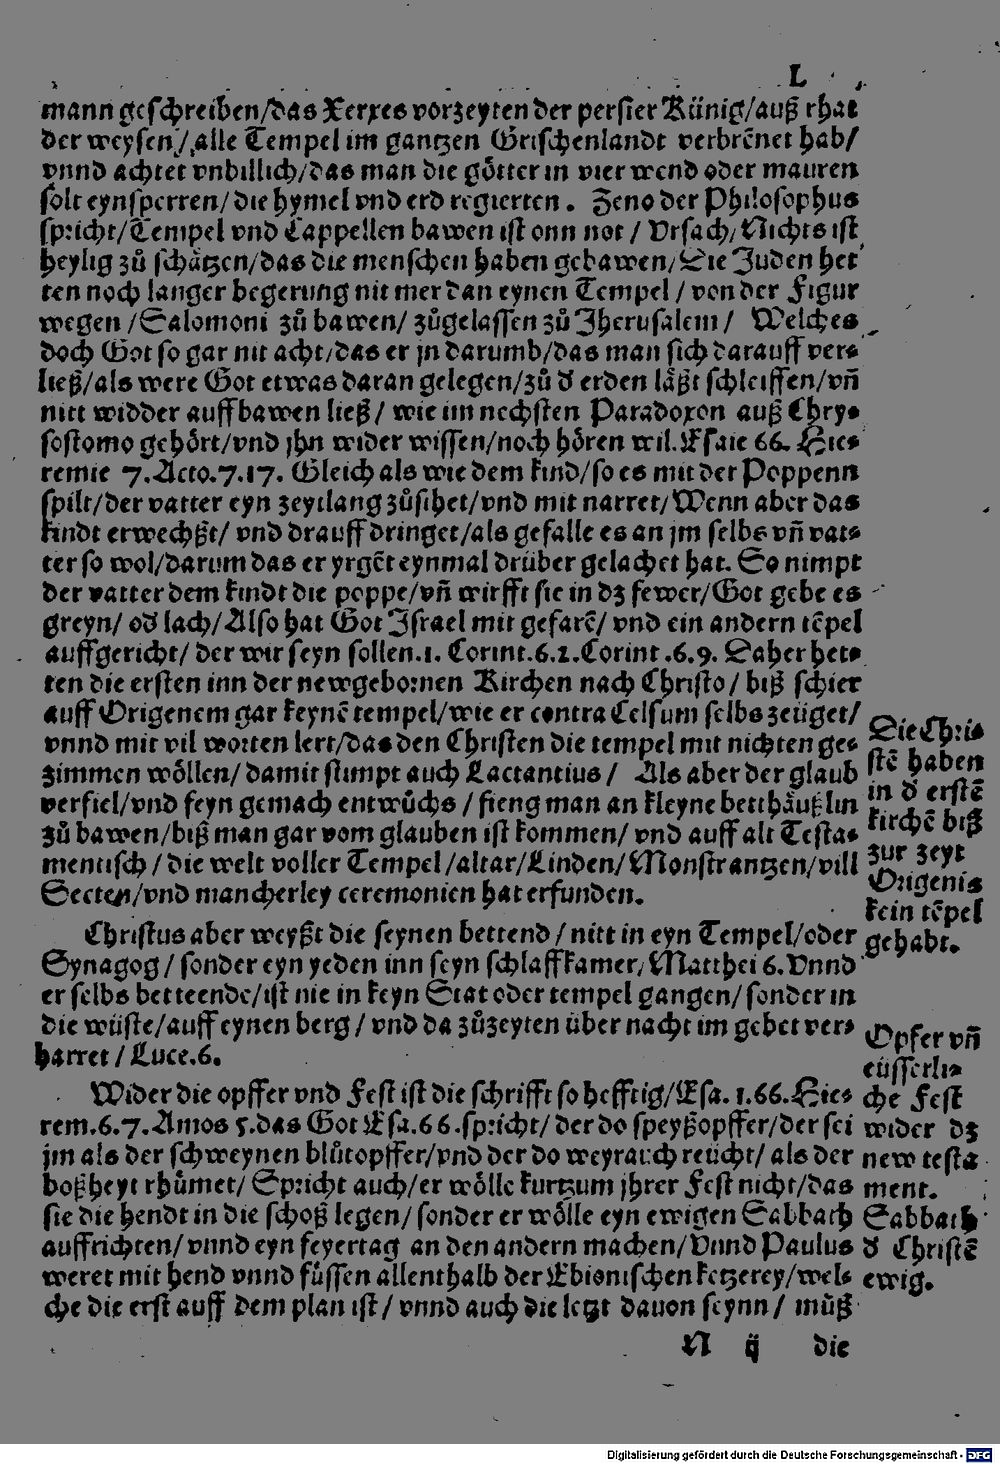 L
mann geschreiben/das Xerxes vorzeyten der persier Künig/auß rhat
der weysen/alle Tempel im gantzen Grischenlandt verbrēnet hab/
vnnd achtet vnbillich/das man die götter in vier wend oder mauren
solt eynsperren/die hymel vnd erd regierten. Zeno der Philosophus
spricht/Tempel vnd Cappellen bawen ist onn not/Vrsach/Nichts ist
heylig zů schätzen/das die menschen haben gebawen/Die Juden het
ten noch langer begerung nit mer dan eynen Tempel/von der Figur
wegen/Salomoni zů bawen/zůgelassen zů Jherusalem/ Welches
doch Got so gar nit acht/das er jn darumb/das man sich darauff ver⸗
ließ/als were Got etwas daran gelegen/zů d̕ erden läßt schleiffen/vñ
nitt widder auffbawen ließ/wie im nechsten Paradoxon auß Chry⸗
sostomo gehört/vnd jhn wider wissen/noch hören wil. Esaie 66. Hie⸗
remie 7. Acto.7.17. Gleich als wie dem kind/so es mit der Poppenn
spilt/der vatter eyn zeytlang zůsihet/vnd mit narret/Wenn aber das
kindt erwechßt/vnd drauff dringet/als gefalle es an jm selbs vñ vat⸗
ter so wol/darum das er yrgēt eynmal drüber gelachet hat. So nimpt
der vatter dem kindt die poppe/vñ wirfft sie in dz fewer/Got gebe es
greyn/od̕ lach/Also hat Got Israel mit gefarē/vnd ein andern tēpel
auffgericht/der wir seyn sollen.1. Corint.6.2.Corint.6.9. Daher het⸗
ten die ersten inn der newgebornen Kirchen nach Christo/biß schier
auff Origenem gar keynē tempel/wie er contra Celsum selbs zeüget/
vnnd mit vil worten lert/das den Christen die tempel mit nichten ge⸗
zimmen wöllen/damit stimpt auch Lactantius/ Als aber der glaub
verfiel/vnd feyn gemach entwůchs/fieng man an kleyne betthäußlin
zů bawen/biß man gar vom glauben ist kommen/vnd auff alt Testa⸗
mentisch/die welt voller Tempel/altar/Linden/Monstrantzen/vill
Secten/vnd mancherley ceremonien hat erfunden.
Christus aber weyßt die seynen bettend/nitt in eyn Tempel/oder
Synagog/sonder eyn yeden inn seyn schlaffkamer/Matthei 6. Vnnd
er selbs betteende/ist nie in keyn Stat oder tempel gangen/sonder in
die wüste/auff eynen berg/vnd da zůzeyten über nacht im gebet ver⸗
harret/Luce.6.
Wider die opffer vnd Fest ist die schrifft so hefftig/Esa. 1.66. Hie⸗
rem.6.7. Amos 5.das Got Esa.66.spricht/der do speyßopffer/der sei
jm als der schweynen blůtopffer/vnd der do weyrauch reücht/als der
boßheyt rhůmet/Spricht auch/er wölle kurtzum jhrer Fest nicht/das
sie die hendt in die schoß legen/sonder er wölle eyn ewigen Sabbath
auffrichten/vnnd eyn feyertag an den andern machen/Vnnd Paulus
weret mit hend vnnd füssen allenthalb der Ebionischen ketzerey/wel⸗
che die erst auff dem plan ist/vnnd auch die letzt dauon seynn/můß
N ij die
Die Chris
stē haben
in d̕ erstē
kirchē biß
zur zeyt
Origenis
kein tēpel
gehabt.
Opfer vñ
eüsserli⸗
che Fest
wider dz
new testa
ment.
Sabbath
d̕ Christē
ewig.
Digitalisierung gefördert durch die Deutsche Forschungsgemeinschaft - DFG